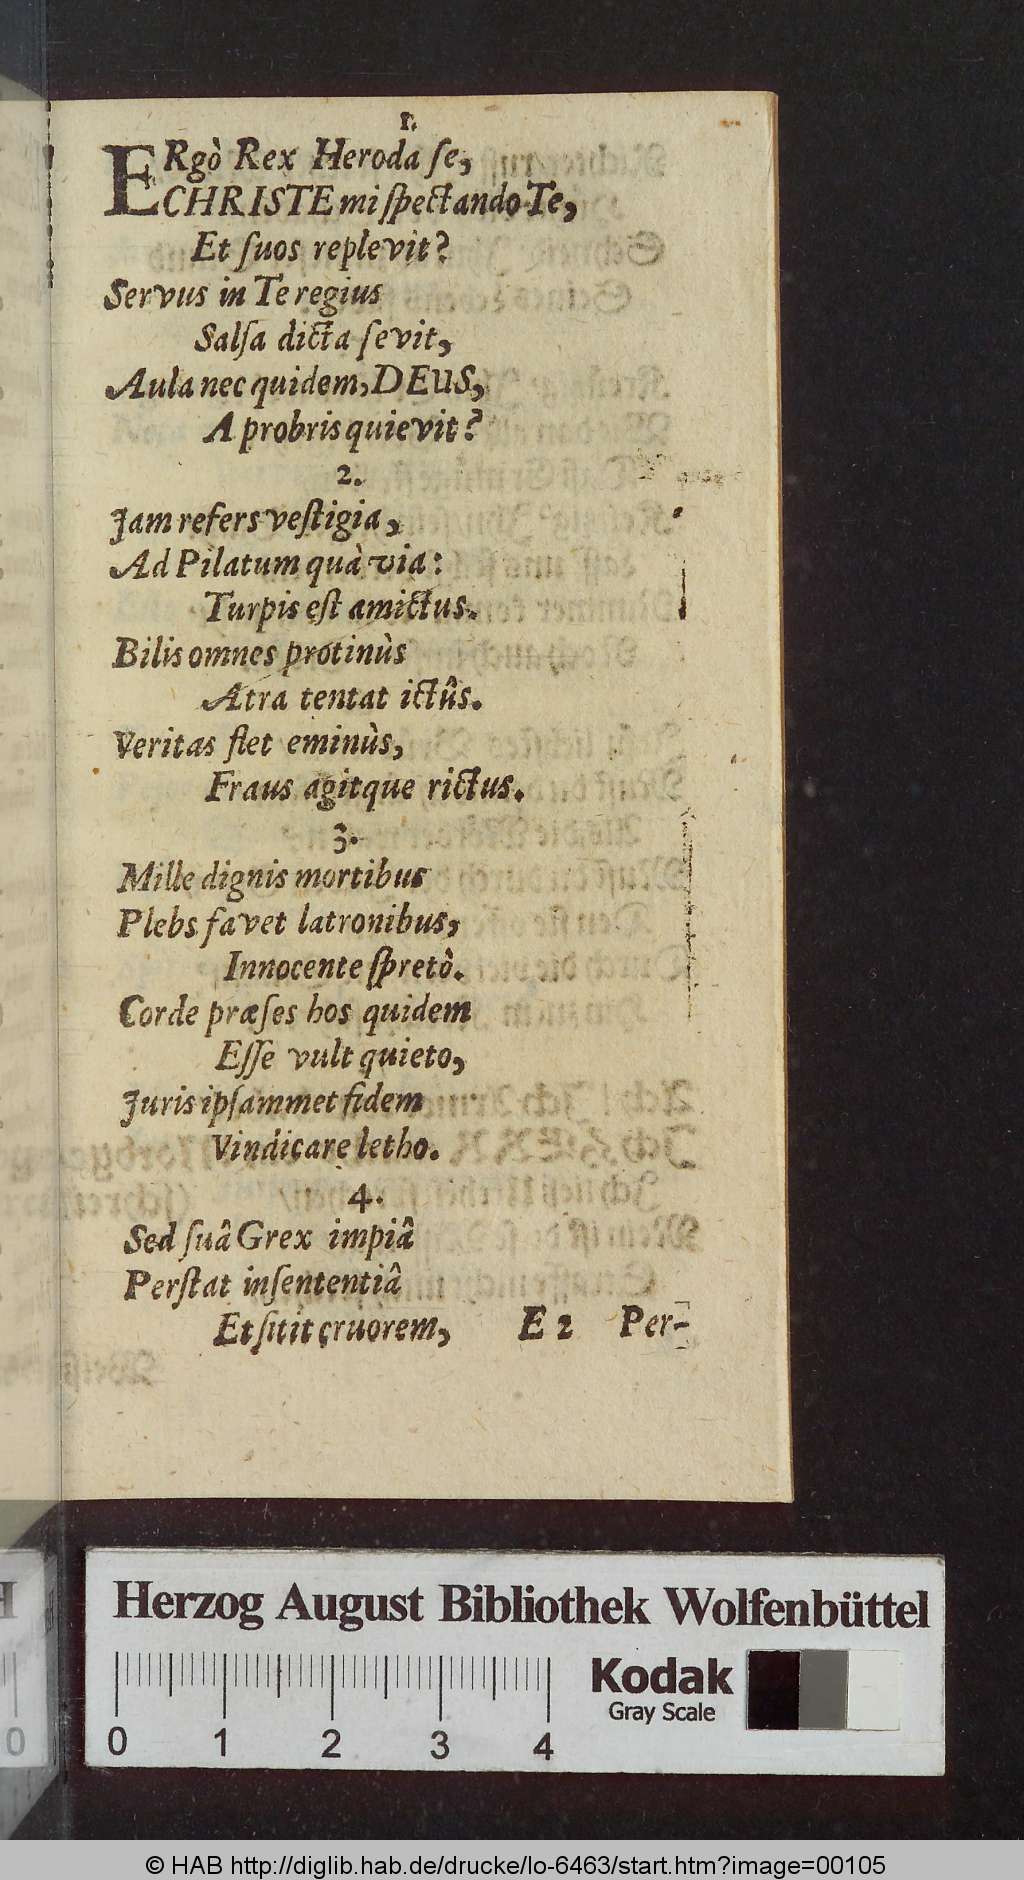 1.
ERgò Rex Heroda se,
CHRISTE mi spectando Te,
Et suos replevit?
Servus in Te regius
Salsa dicta sevit,
Aula nec quidem, DEUS,
A probris quievit?
2.
Jam refers vestigia,
Ad Pilatum quà via:
Turpis est amictus.
Bilis omnes protinùs
Atra tentat ictûs.
Veritas flet eminùs,
Fraus agitque rictus.
3.
Mille dignis mortibus
Plebs favet latronibus,
Innocente spretò.
Corde præses hos quidem
Esse vult quieto,
Juris ipsammet fidem
Vindicare letho.
4.
Sed suâ Grex impiâ
Perstat insententiâ
Et sitit cruorem,
E 2 Per-
Herzog August Bibliothek Wolfenbüttel
Kodak
Gray Scale
0 1 2 3 4
© HAB http://diglib.hab.de/drucke/lo-6463/start.htm?image=00105